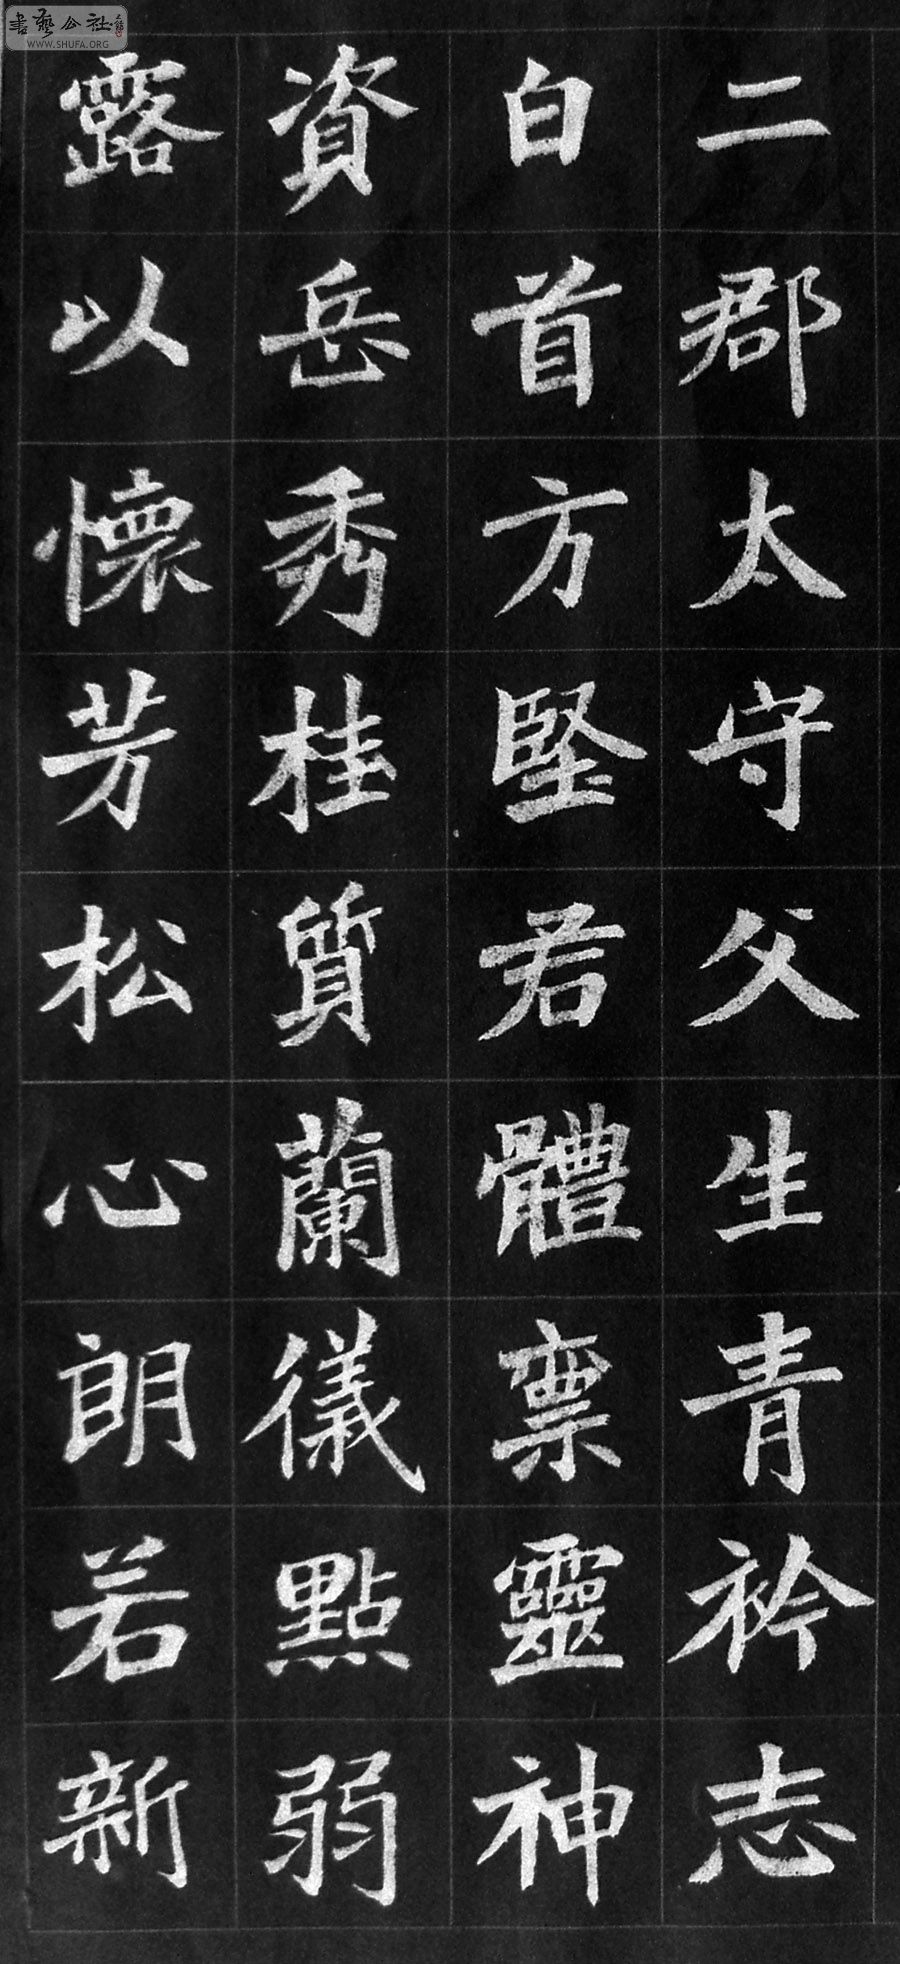 二郡太守父生青衿志
白首方堅君體稟靈神
資岳秀桂質蘭儀點弱
露以懷芳松心朗若新
書藝公社
WWW.SHUFA.ORG